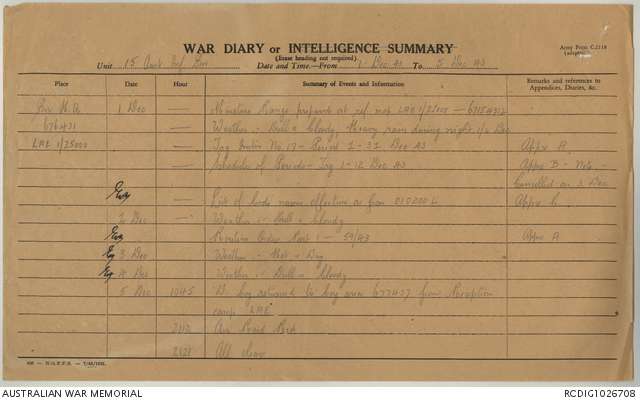 WAR DIARY or INTELLIGENCE SUMMARY
(Erase heading not required)
Army Form C.2118
Unit 15 Aust Inf Date and Time—From 1 Dec 43 To 5 Dec 43
Place Date Hour Summary of Events and Information Remarks and references to Appendices, Diaries, &c.
1 Dec — Miniature Range prepared at ref. map LAE 1/25000 —
676431 — Weather :- Dull & cloudy. Heavy rain during night 1/2 Dec
LAE 1/25000 — Trg No. 17 - Period 1 - 31 Dec 43 Appx A.
— of Periods - Trg 1 - 12 Dec 43 Appx B - Note -
cancelled on 3 Dec
— List of code names effective as from Appx C.
2 Dec — Weather :- Dull & cloudy
Routine Order Part 1 :- 59/43 Appx A
3 Dec — Weather :- Hot & Dry
4 Dec — Weather :- Dull & cloudy
5 Dec 1045 returned to area 677437 from Reception
camp LAE
2112 Air Raid Red
2121 All clear
AUSTRALIAN WAR MEMORIAL
RCDIG1026708